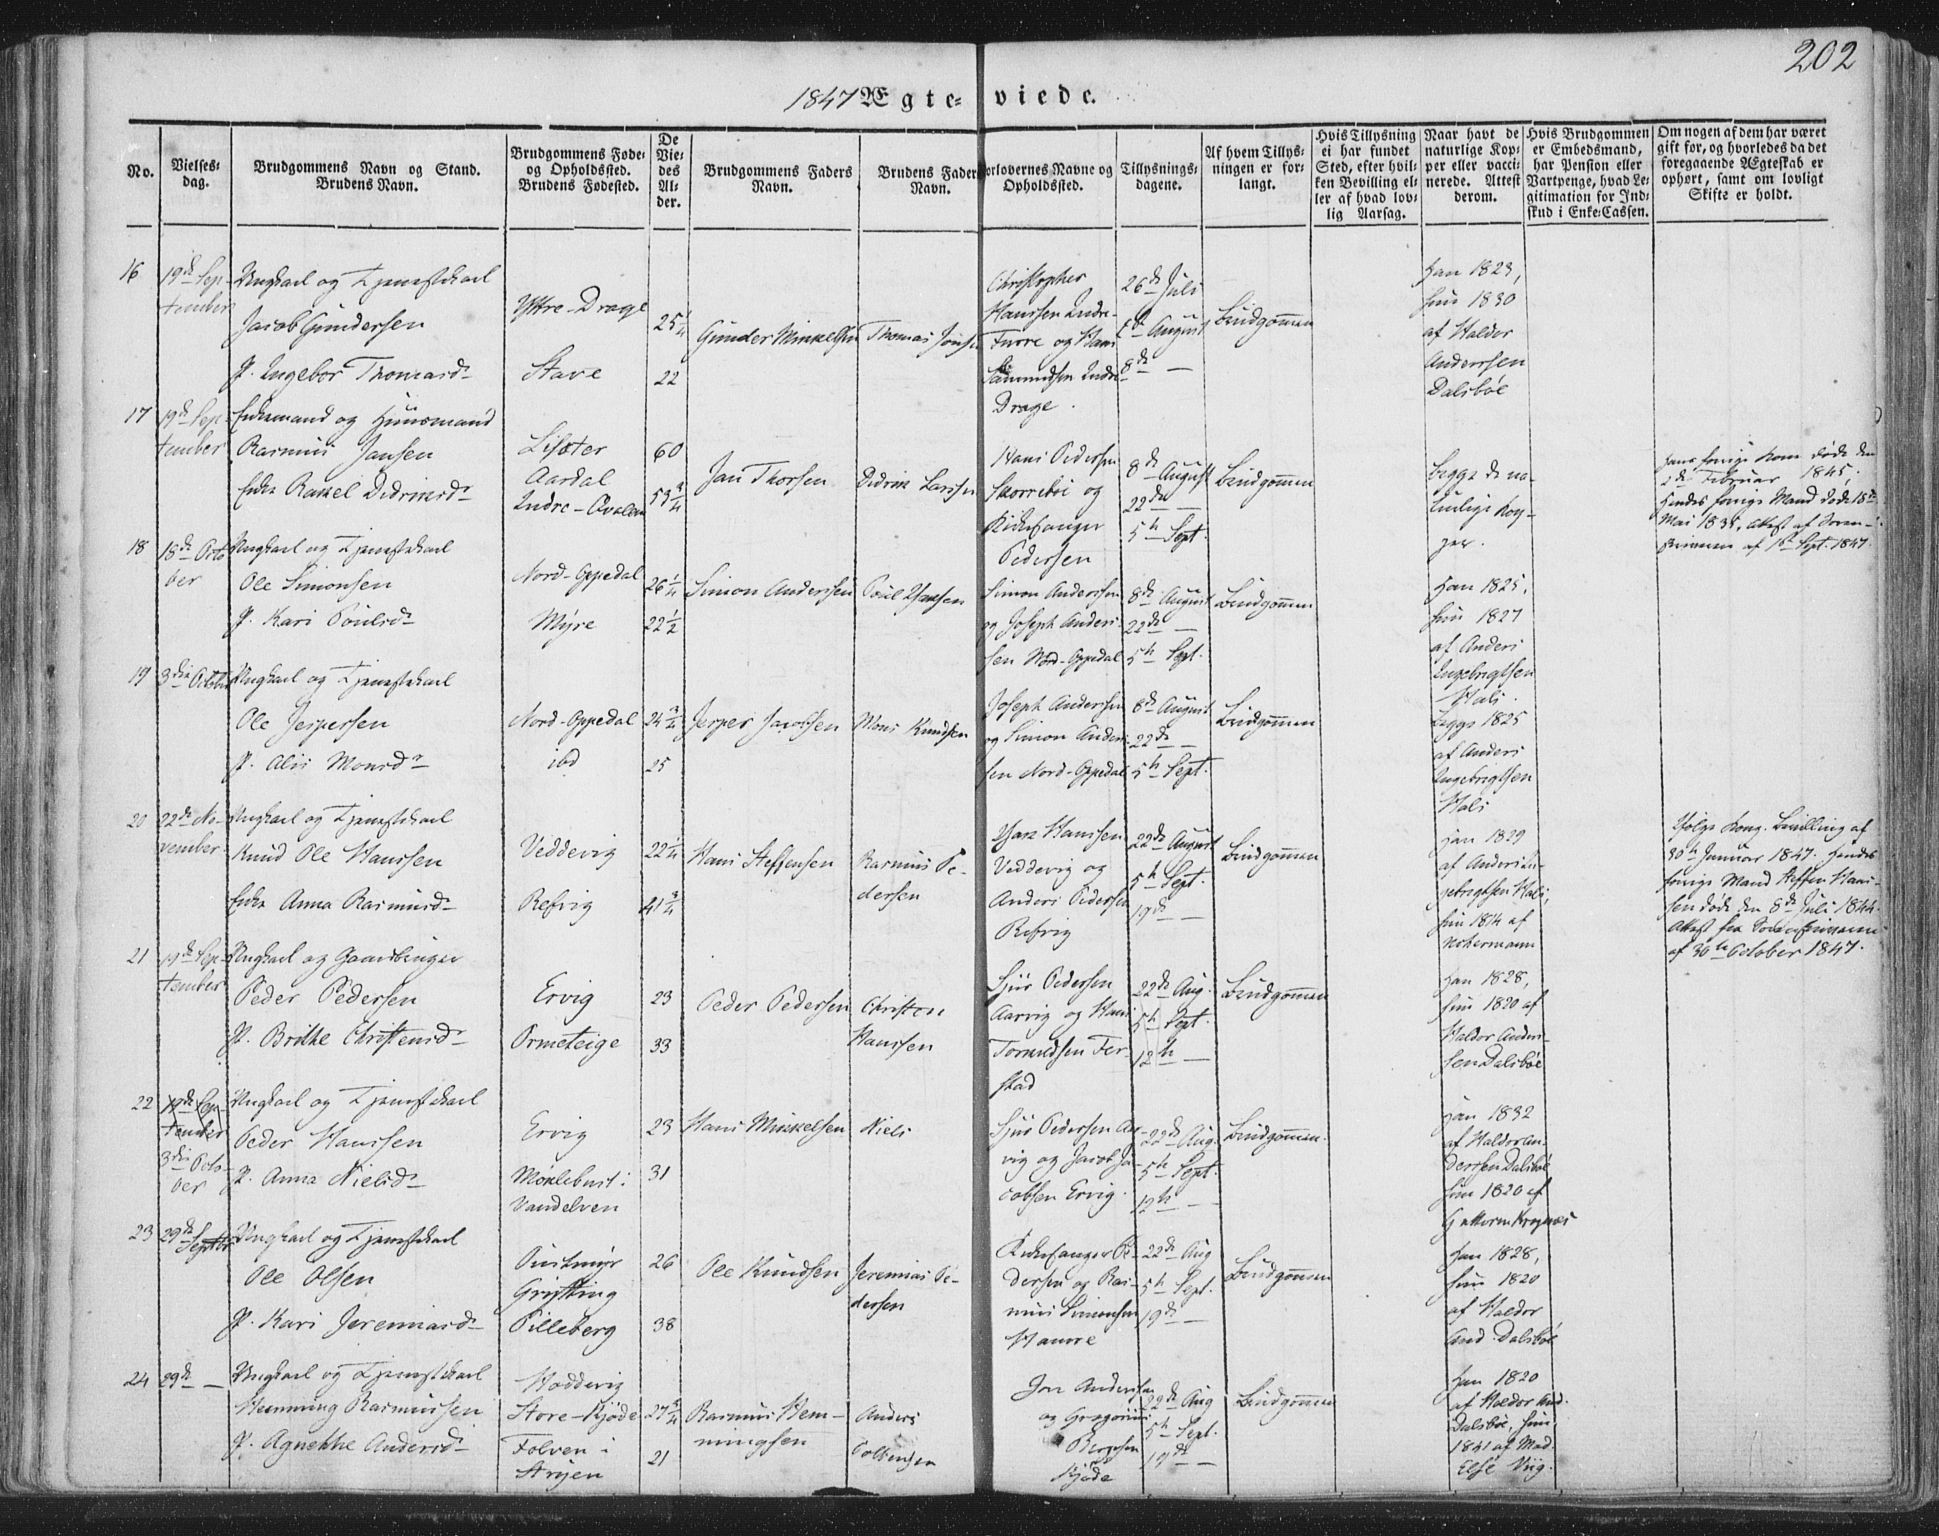 202
1847 Ægte- viede.
No.
Vielses-
dag.
Brudgommens Navn og Stand.
Brudens Navn.
Brudgommens Føde-
og Opholdssted.
Brudens Fødested.
De
Vie-
des
Al-
der.
Brudgommens Faders
Navn.
Brudens Faders
Navn.
Forlovernes Navne og
Opholdssted.
Tillysnings-
dagene.
Af hvem Tillys-
ningen er for-
langt.
Hvis Tillysning
ei har fundet
Sted, efter hvil-
ken Bevilling el-
ler af hvad lov-
lig Aarsag.
Naar havt de
naturlige Kop-
per eller vacci-
nerede. Attest
derom.
Hvis Brudgommen
er Embedsmand,
har Pension eller
Vartpenge, hvad Le-
gitimation for Ind-
skud i Enke-Cassen.
Om nogen af dem har været
gift før, og hvorledes da det
foregaaende Ægteskab er
ophørt, samt om lovligt
Skifte er holdt.
16
19de Sep-
tember
Ungkarl og Tjenestekarl
Jacob Gundersen
P. Ingebor Thomasd.
Yttre-Drage
Stave
25 1/4
22
Gunder Minkelsen
Thomas
Christopher
Hanssen Indre-
Furre og Hans
Samundsen Indre
Drage.
26de Juli
August
8de —
Brudgommen
Han 1823,
hun 1830
af Haldor
Anderssen
Dalsbøe
17
19de Sep-
tember
Enkemand og Huusmand
Rasmus Jansen
Enke Rakel Didriksd.
Lisæter
Aardal
Indre-
60
53 3/4
Jan Thorsen
Didrik Larssen
Hans Pedersen
Skorrebøe og
Kirkesanger
Pedersen
8de August
22de —
5te Sept.
Brudgommen
begge de na-
turlige Kop-
per.
Hans forrige Kone døde den
Februar 1845,
Hendes forrige Mand døde 18de
Mai 1838, Attest af Soren-
skriveren af 1ste Sept. 1847.
18
18de Octo-
ber
Ungkarl og Tjenestekarl
Ole Simonsen
P. Kari Poulsd.
Nord-Oppedal
Myre
26 1/4
22 1/2
Simon Anderssen
Poul Hansen
Simon Anderssen
og Joseph Anders-
sen Nord-Oppedal
8de August
22de —
5te Sept.
Brudgommen
Han 1825,
hun 1827
af Anders
Ingebrigtsen
Hals.
19
3die October
Ungkarl og Tjenestekarl
Ole Jespersen
P. Alis Monsd.
Nord-Oppedal
ibd
24 3/4
25
Jesper Jacobsen
Mons Knudsen
Joseph Anderssen
og Simon Anders-
sen Nord-Oppedal
8de August
22de —
5te Sept.
Brudgommen
begge 1825
af Anders
Ingebrigtsen
Hals
20
22de No-
vember
Ungkarl og Tjenestekarl
Knud Ole Hanssen
Enke Anna Rasmusd.
Veddevig
Refvig
22 1/4
41 3/4
Hans Steffensen
Rasmus Pe-
dersen
Hanssen
Veddevig og
Anders Pedersen
Refvig
22de August
5te Sept.
19de —
Brudgommen
Han 1829
af Anders In-
gebrigtsen Hals,
hun 1814 af
Ifølge Kong. Bevilling af
30te Januar 1847. Hendes
forrige Mand Steffen Hans-
sen døde den 8de Juli 1844.
Attest fra Sorenskriveren
af 30te October 1847.
21
19de Sep-
tember
Ungkarl og Gaardbruger
Peder Pedersen
P. Brithe Christensd.
Ervig
Ormeteige
23
33
Peder Pedersen
Christen
Hanssen
Sjur Pedersen
Aarvig og Hans
Fer-
stad
22de Aug.
5te Sept.
12te —
Brudgommen
Han 1828,
hun 1820 af
Haldor Anders-
sen Dalsbøe
22
19de Sep-
tember
3die Octo-
ber
Ungkarl og Tjenestekarl
Peder Hanssen
P. Anna Nielsd.
Ervig
Møklebust i
Vandelven
23
31
Hans Minkelsen
Niels
Sjur Pedersen Ar-
vig og Jacob Ja-
cobsen Ervig.
22de Aug.
5te Sept.
12te —
Brudgommen
Han 1832
af Haldor An-
derssen Dalsbøe
hun 1820 af
Guttorm
23
29de
Septbr
Ungkarl og Tjenestekarl
Ole Olsen
P. Kari Jeremiasd.
Pilleberg
26
38
Ole Knudsen
Jeremias Pe-
dersen
Kirkesanger Pe-
dersen og Ras-
mus Simonsen
Hamre
22de Aug
5te Sept.
19de —
Brudgommen
Han 1828,
hun 1820
af Haldor
And. Dalsbøe
24
29de —
Ungkarl og Tjenestekarl
Hemming Rasmussen
P. Agnethe Andersd.
Hoddevig
Store-Kjøde
Folven i
Stryen
27 3/4
21
Rasmus Hem-
mingsen
Anders
Jon Anderssen
og Gregorius
Kjøde
22de Aug
5te Sept.
19de —
Brudgommen
Han 1820
af Haldor And.
Dalsbøe, hun
1831 af Mad.
Else Viig.